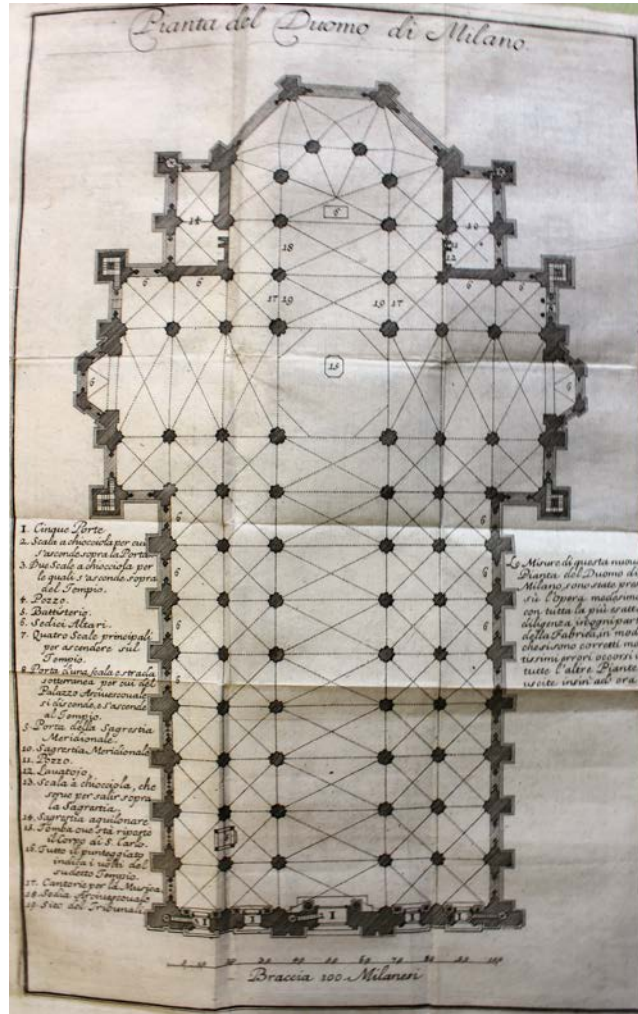 Pianta del Duomo di Milano.
1. Cinque Porte
2. Scala a chiocciola per cui
s'ascende sopra la Porta
3. Due Scale a chiocciola per
le quali s'ascende sopra
del Tempio.
4. Pozzo.
5. Battisterio.
6. Sedici Altari.
7. Quatro Scale principali
per ascendere sul
Tempio.
8. Porta d'una scala e strada
sotterranea per cui del
Palazzo Arciuescouale
si discende, e s'ascende
al Tempio.
9. Porta della Sagrestia
Meridionale.
10. Sagrestia Meridionale
11. Pozzo.
12. Lauatojo.
13. Scala à chiocciola, che
serue per salir sopra
la Sagrestia.
14. Sagrestia aquilonare.
15. Tomba oue stà riposto
il Corpo di S. Carlo.
16. Tutto il punteggiato
indica i uolti del
sudetto Tempio.
17. Cantorie per la Musica
18. Sedia Arciuescouale
19. de' Tribunali
Le Misure di questa nuou
Pianta del Duomo di
Milano, sono state pres
sù l'Opera medesima
con tutta la più esatta
diligenza, in ogni part
della Fabrica, in mod
che si sono corretti mo
tissimi errori occorsi i
tutte l'altre Piante
uscite insin ad ora
Braccia 100 Milanesi